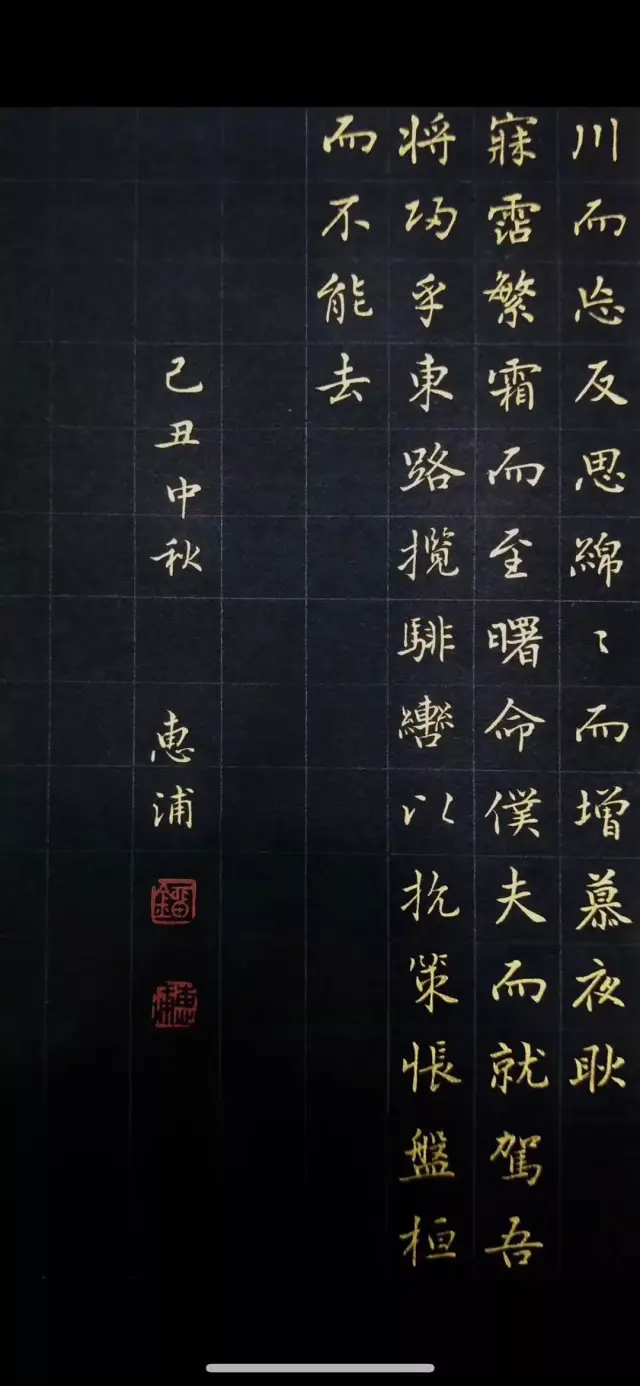 川而忘反思綿〻而增慕夜耿
寐霑繁霜而至曙命僕夫而就駕吾
将歸乎東路攬騑轡以抗策悵盤桓
而不能去
己丑中秋 惠浦